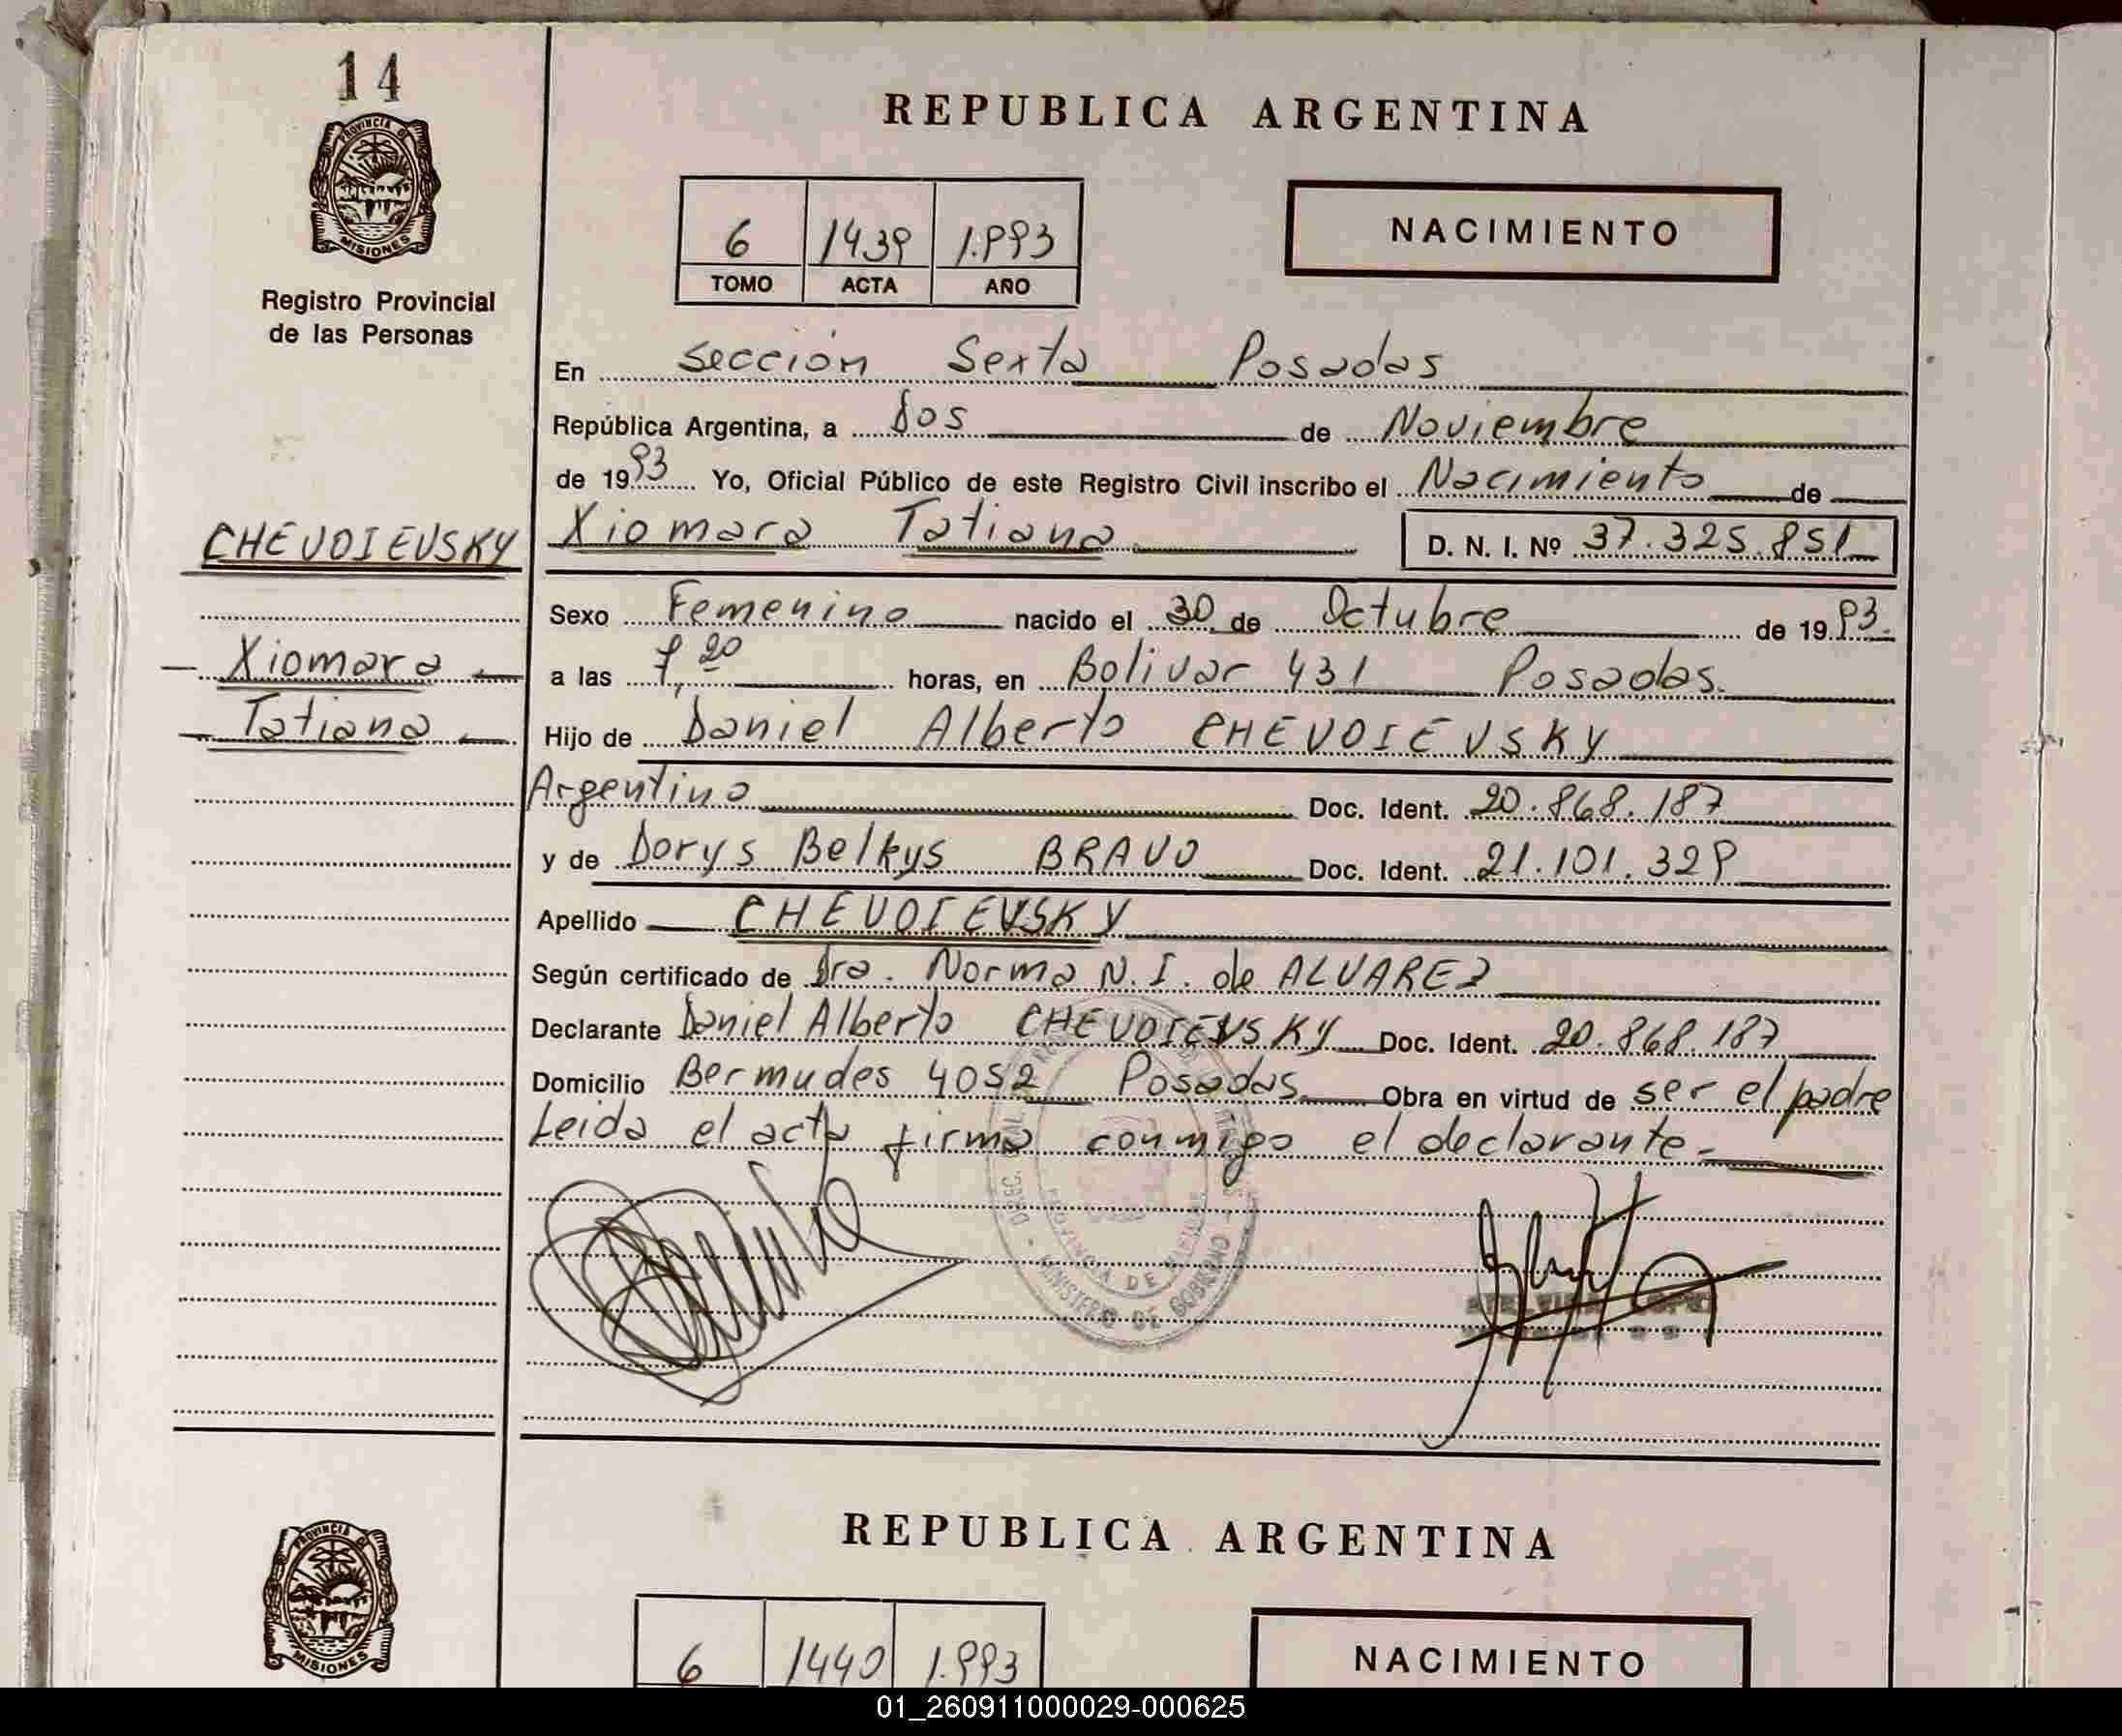 14
PROVINCIA DE
MISIONES
Registro Provincial
de las Personas
REPUBLICA ARGENTINA
6 1439 1.993
TOMO ACTA AÑO
NACIMIENTO
En Sección Sexta Posadas
República Argentina, a dos de Noviembre
de 1993 Yo, Oficial Público de este Registro Civil inscribo el Nacimiento de
CHEVOIEVSKY
Xiomara Tatiana D. N. I. Nº 37.325.851
Sexo Femenino nacido el 30 de Octubre de 1993.
Xiomara
Tatiana
a las 7,20 horas, en Bolivar 431 Posadas.
Hijo de Daniel Alberto CHEVOIEVSKY
Argentino Doc. Ident. 20.868.187
y de Dorys Belkys BRAVO Doc. Ident. 21.101.329
Apellido CHEVOIEVSKY
Según certificado de Dra. Norma N. I. de ALVAREZ
Declarante Daniel Alberto CHEVOIEVSKY Doc. Ident. 20.868.187
Domicilio Bermudes 4052 Posadas Obra en virtud de ser el padre
Leida el acta firma conmigo el declarante.-
MINISTERIO DE GOBIERNO
PROVINCIA DE MISIONES
PROVINCIA DE
MISIONES
REPUBLICA ARGENTINA
6 1440 1.993
NACIMIENTO
01_260911000029-000625